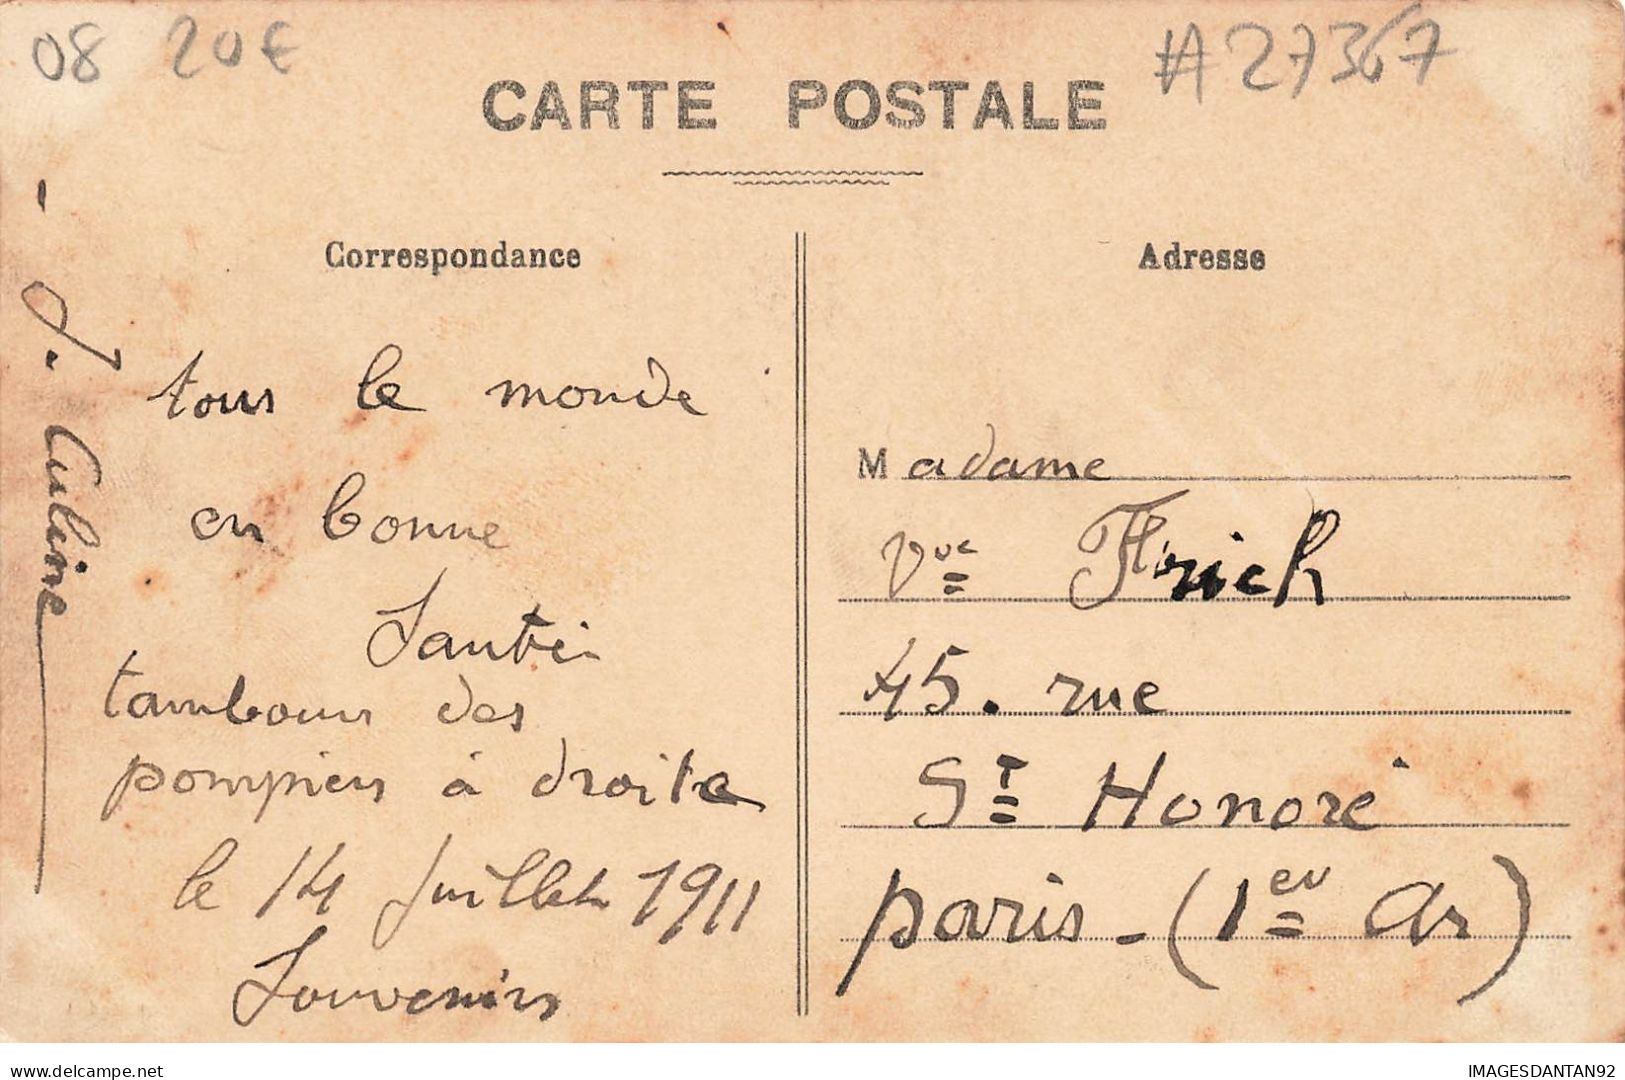 08 20€ #27367
CARTE POSTALE
Correspondance
tous le monde
en bonne
Santé
tambours des
pompiers à droite
le 14 Juillet 1911
Souvenirs
J. Culine
Adresse
Madame
Vve
45. rue
St Honoré
paris - (1er Ar)
delcampe.net
IMAGESDANTAN92